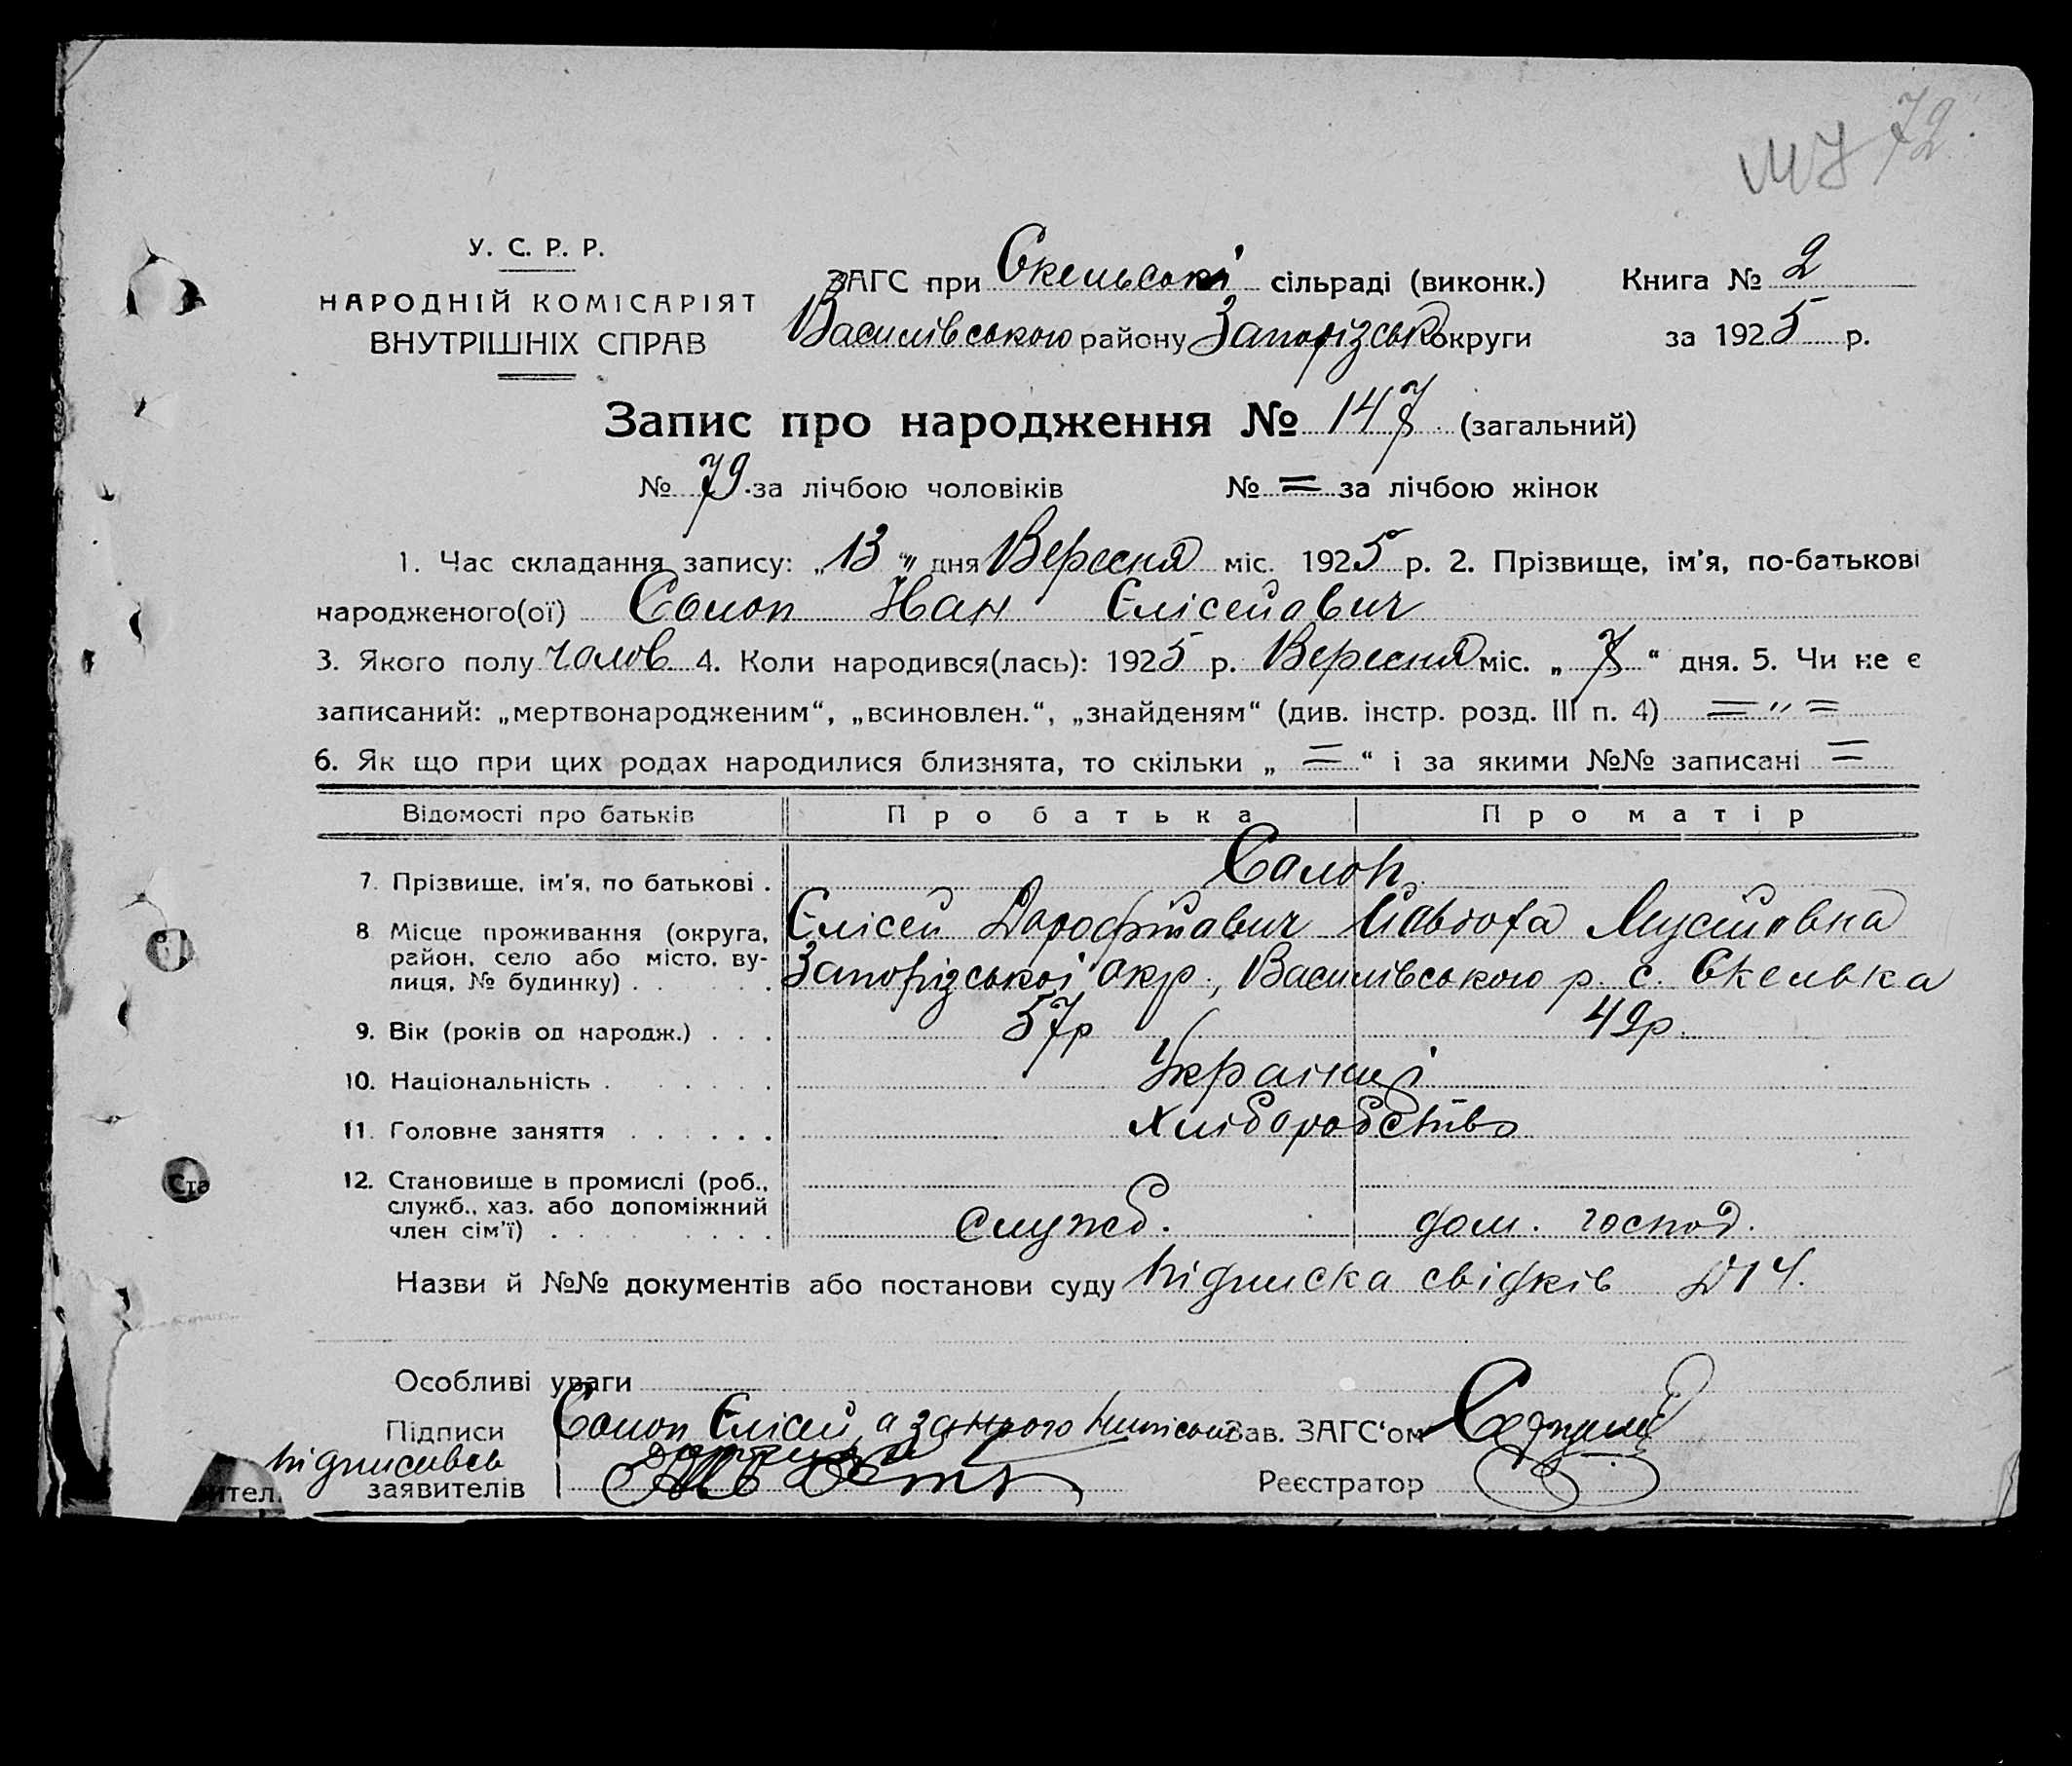 72
У. С. Р. Р.
НАРОДНІЙ КОМІСАРІЯТ
ВНУТРІШНІХ СПРАВ
ЗАГС при Скельські сільраді (виконк.)
Василівського району Запорізськ округи
Книга № 2
за 1925 р.
Запис про народження № 147 (загальний)
№ 79 за лічбою чоловіків № = за лічбою жінок
1. Час складання запису: „13“ дня Вересня міс. 1925 р. 2. Прізвище, ім'я, по-батькові
народженого(ої) Солоп Іван Єлісейович
3. Якого полу чолов 4. Коли народився(лась): 1925 р. Вересня міс. „7“ дня. 5. Чи не є
записаний: „мертвонародженим“, „всиновлен.“, „знайденям“ (див. інстр. розд. III п. 4) = „ =
6. Як що при цих родах народилися близнята, то скільки „ = “ і за якими №№ записані =
Відомості про батьків Про батька Про матір
7. Прізвище, ім'я, по батькові . Солоп
Єлісей
8 Місце проживання (округа, район, село або місто, ву-
лиця, № будинку) . . . Запорізської окр., Василівського р. с. Скелька
9. Вік (років од народж.) . . . 57р 49р.
10. Національність . . . . . . Українці
11. Головне заняття . . . . . . Хліборобство
12. Становище в промислі (роб.,
служб., хаз. або допоміжний
член сім'ї) . . . . . . . . служб. дом. господ.
Назви й №№ документів або постанови суду підписка свідків №14.
Особливі уваги
Підписи Солоп Єлісей, а за Зав. ЗАГС'ом
підписавсь
заявителів Реєстратор
Ста
ител.